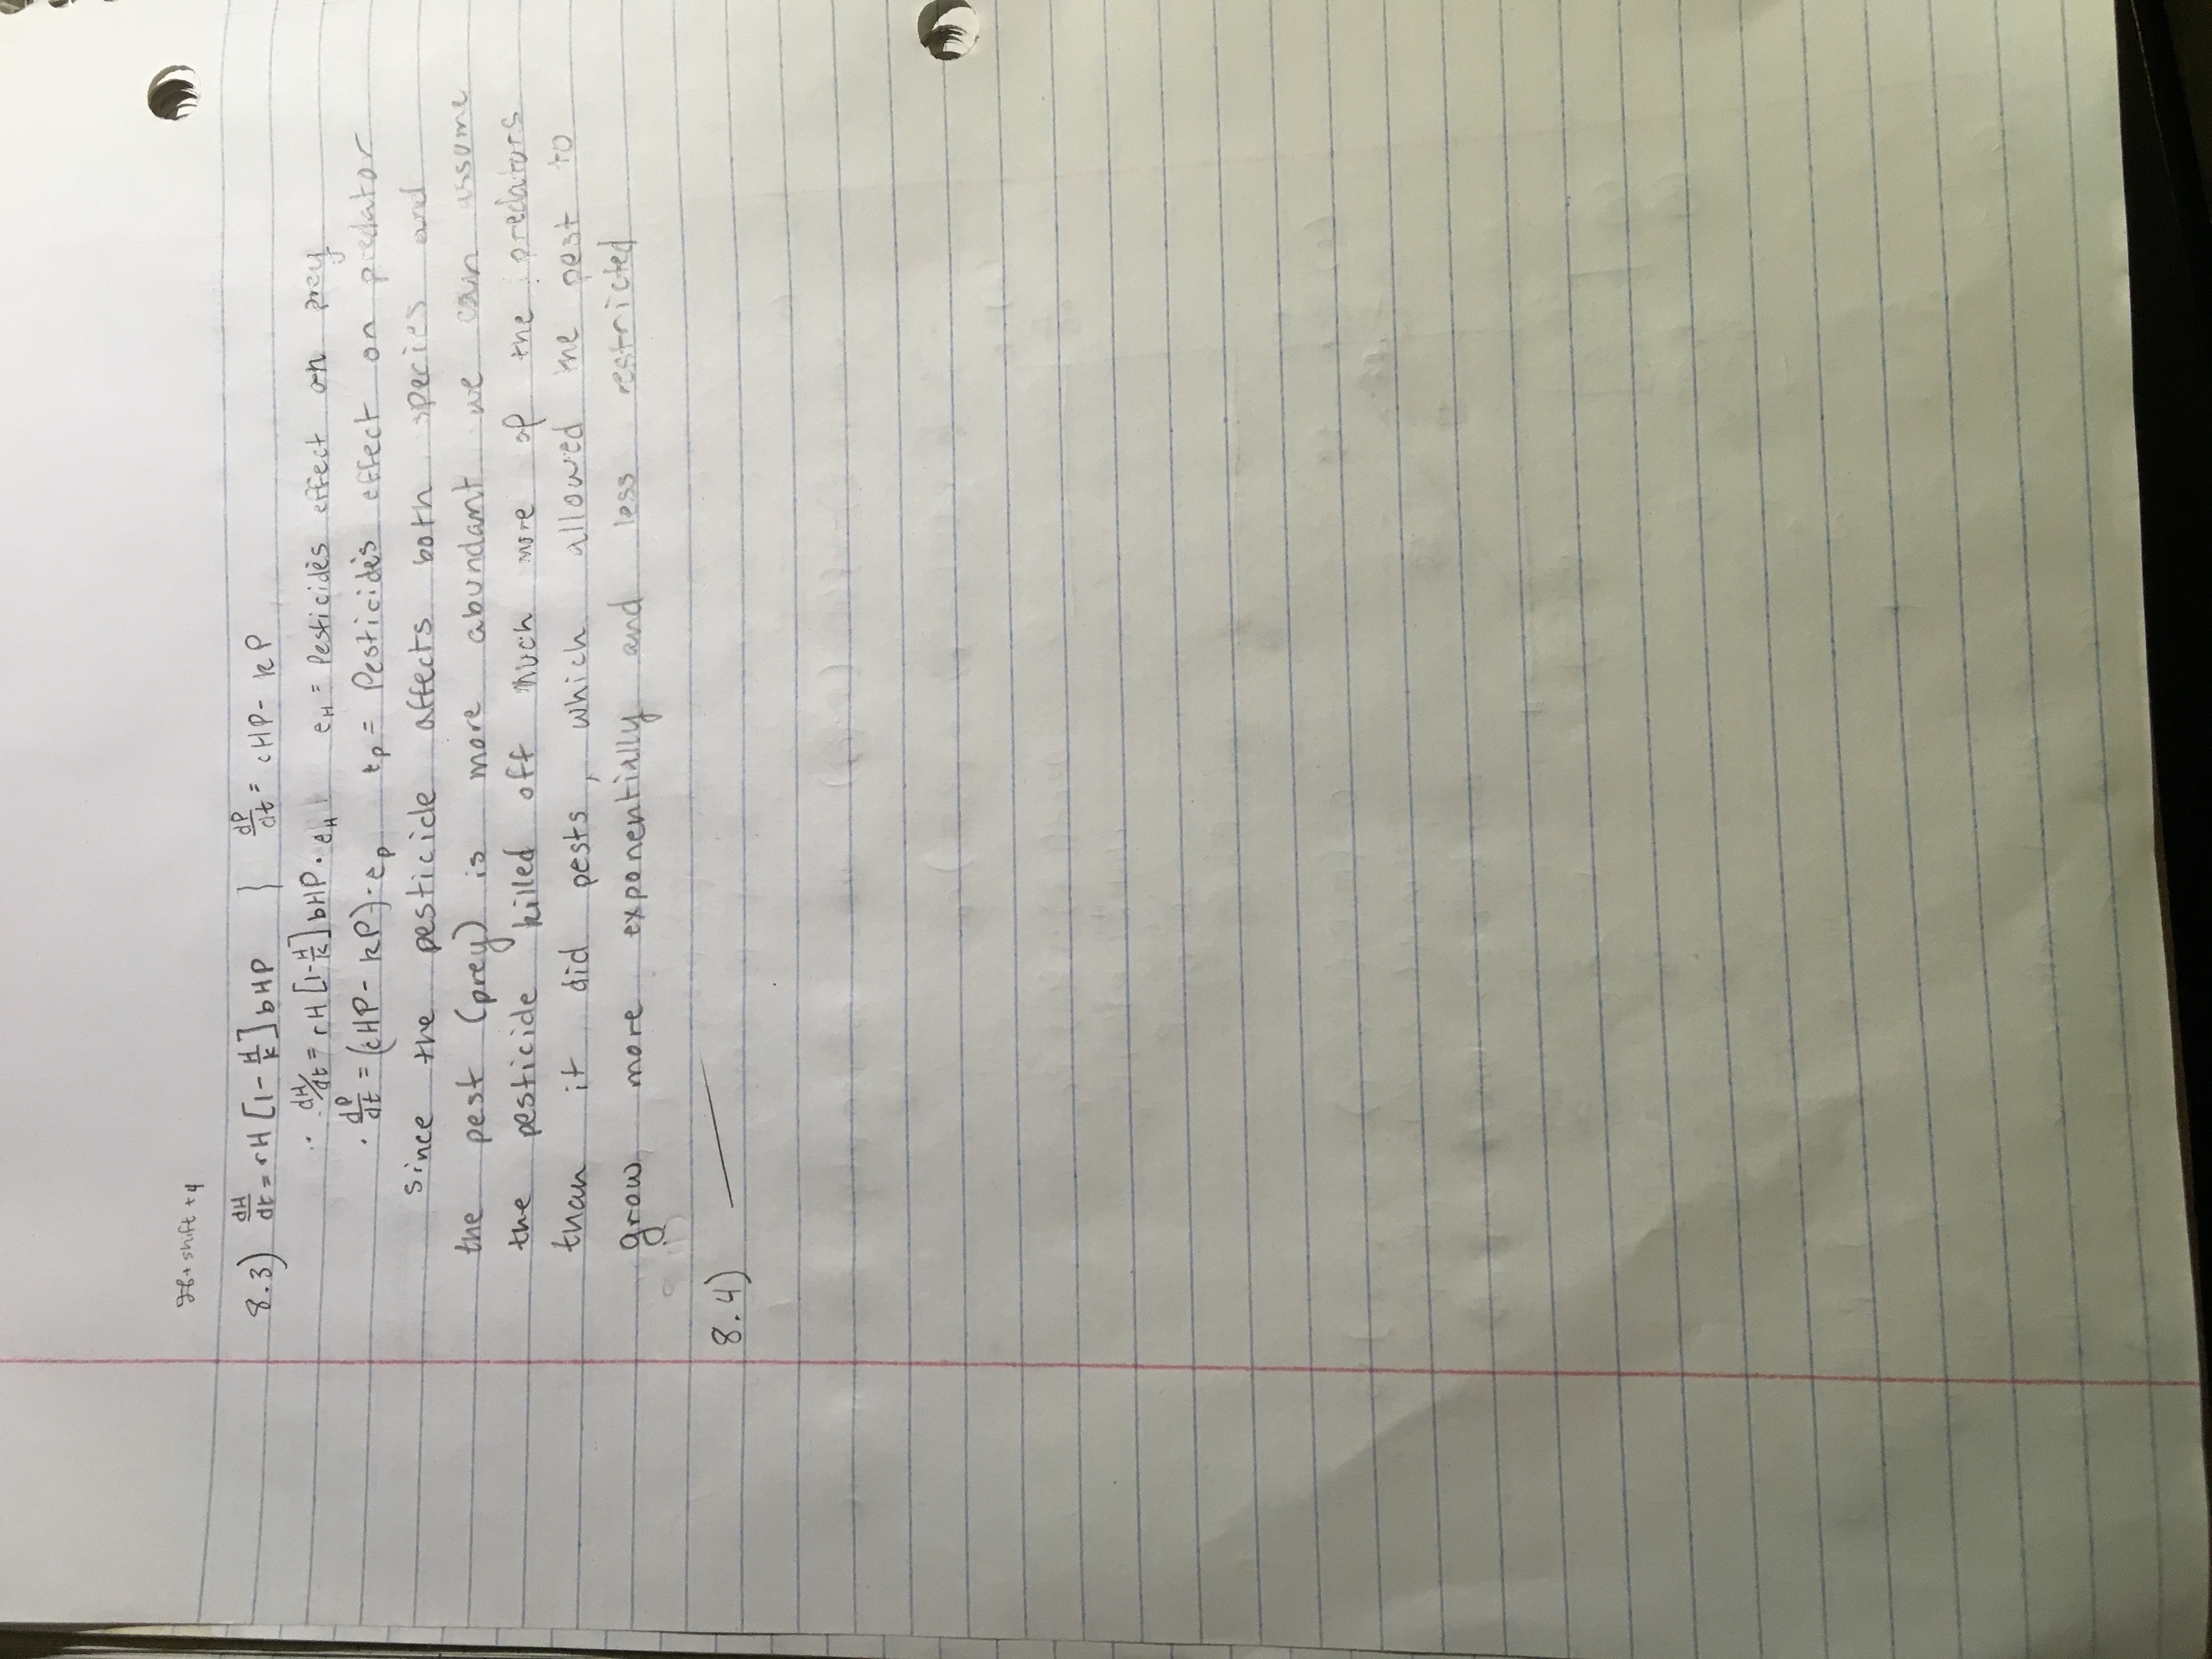 ⌘ + shift + 4
8.3) dH/dt = rH [1 - H/K] bHP } dP/dt = cHP - kP
· dH/dt = rH [1 - H/K] bHP · eH eH = Pesticide's effect on prey
· dP/dt = (cHP - kP) · eP eP = Pesticide's effect on predator
since the pesticide affects both species and
the pest (prey) is more abundant we can assume
the pesticide killed off much more of the predators
than it did pests, which allowed the pest to
grow more exponentially and less restricted
8.4)